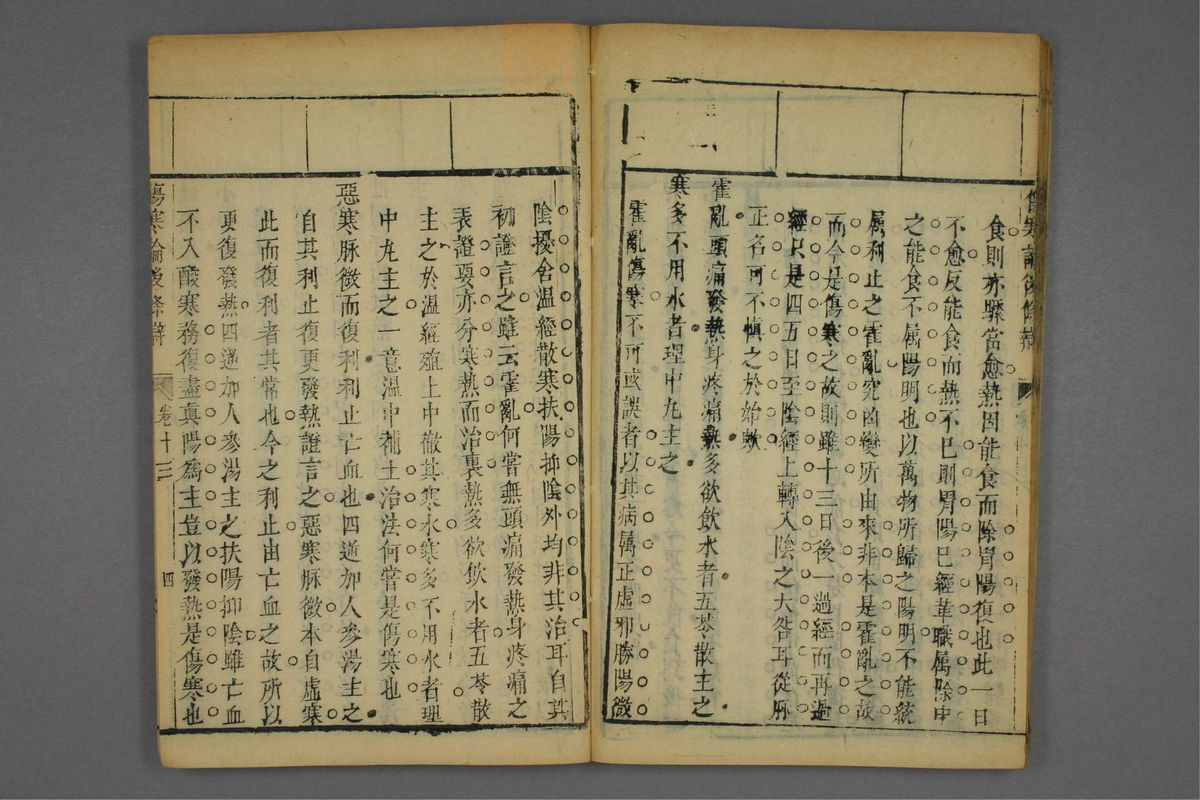 傷寒論後條辨
食則亦驟當愈熱因能食而除胃陽復也此一日
不愈反能食而熱不已則胃陽已經革職属除中
之能食不属陽明也以萬物所歸之陽明不能統
属利止之霍亂究凶變所由來非本是霍亂之故
而今是傷寒之故則雖十三日後一過經而再過
經只是四五日至陰經上轉入陰之大咎耳從脉
正名可不慎之於始歟
霍亂頭痛發熱身疼痛熱多欲飲水者五苓散主之
寒多不用水者理中丸主之
霍亂傷寒不可或誤者以其病属正虛邪勝陽微
陰擾舍温經散寒扶陽抑陰外均非其治耳自其
初證言之雖云霍亂何嘗無頭痛發熱身疼痛之
表證要亦分寒熱而治裏熱多欲飲水者五苓散
主之於温經殖上中徹其寒水寒多不用水者理
中丸主之一意温中補土治法何嘗是傷寒也
惡寒脉微而復利利止亡血也四逆加人參湯主之
自其利止復更發熱證言之惡寒脉微本自虛寒
此而復利者其常也今之利止由亡血之故所以
更復發熱四逆加人參湯主之扶陽抑陰雖亡血
不入酸寒務復盡真陽爲主豈以發熱是傷寒也
傷寒論後條辨
卷十三
四